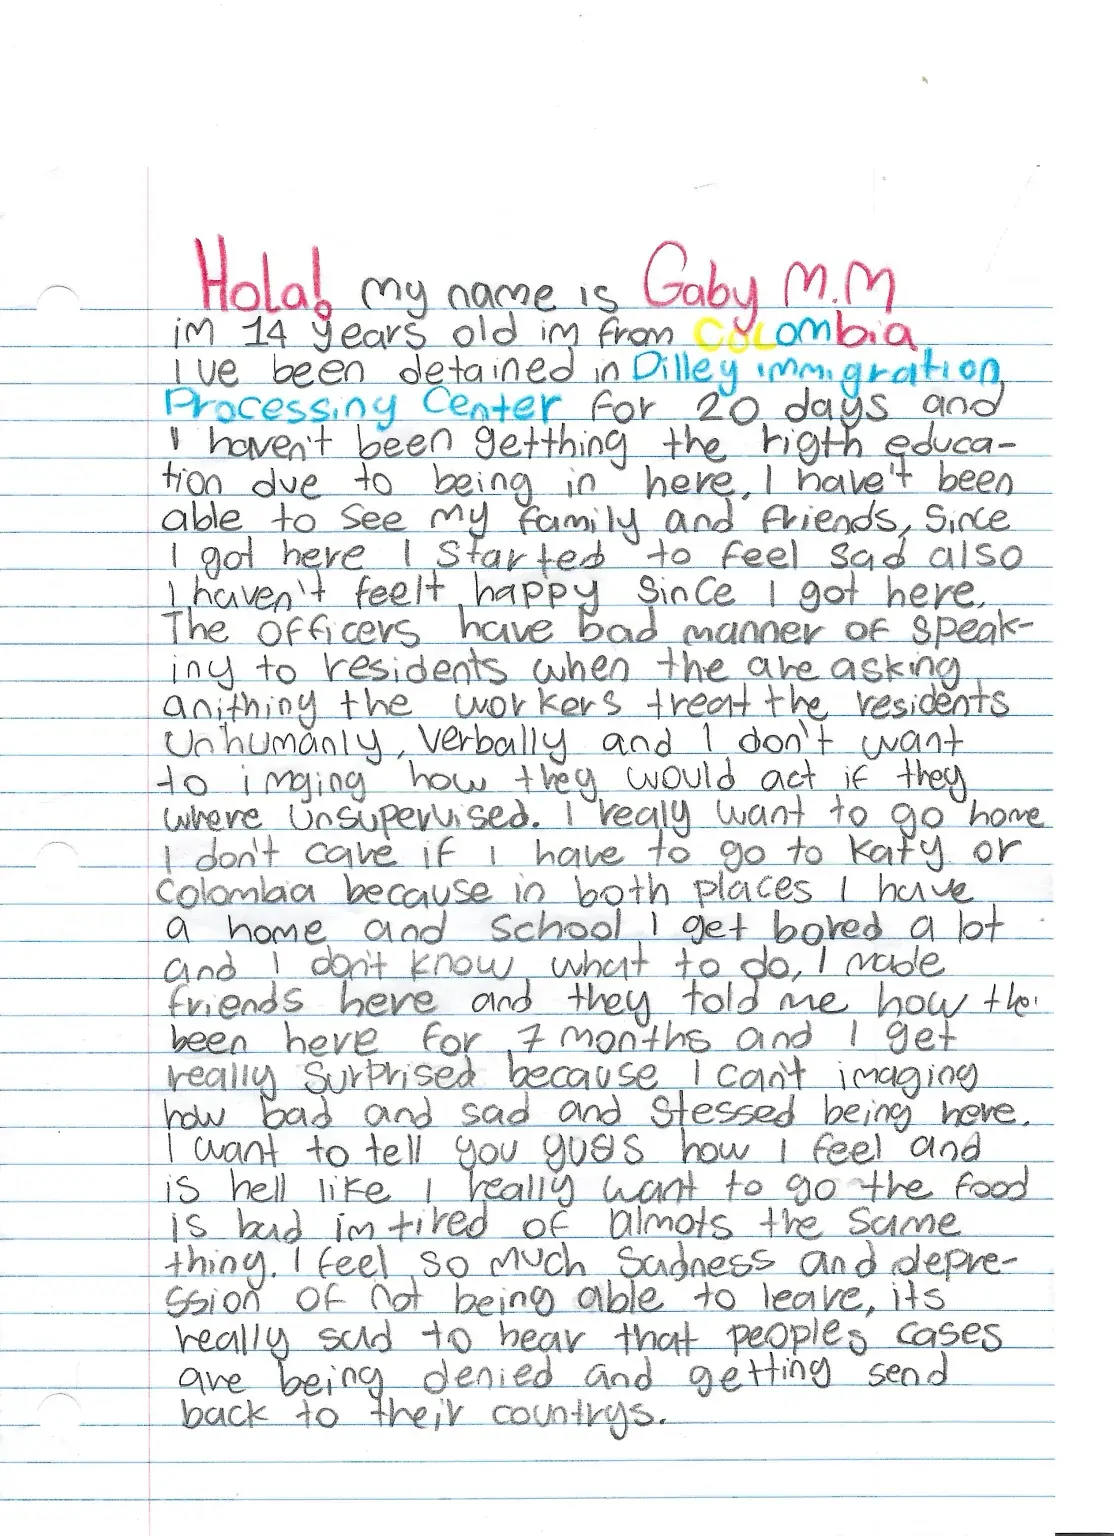 Hola! my name is Gaby M.M
im 14 years old im from Colombia
i've been detained in Dilley immigration
Processing Center for 20 days and
I haven't been getthing the rigth educa-
tion due to being in here. I have't been
able to see my family and friends, Since
I got here I Started to feel sad also
I haven't feelt happy since I got here.
The officers have bad manner of speak-
ing to residents when the are asking
anithing the workers treat the residents
unhumanly, verbally and I don't want
to imging how they would act if they
where unsupervised. I realy want to go home
I don't care if I have to go to Katy or
Colombia because in both places I have
a home and School I get bored a lot
and I don't know what to do, I made
friends here and they told me how the
been here for 7 months and I get
really Surprised because I can't imaging
how bad and sad and Stessed being here.
I want to tell you guys how I feel and
is hell like I really want to go the food
is bad im tired of almots the same
thing. I feel so much Sadness and depre-
ssion of not being able to leave, its
really sad to hear that peoples cases
are being denied and getting send
back to their countrys.